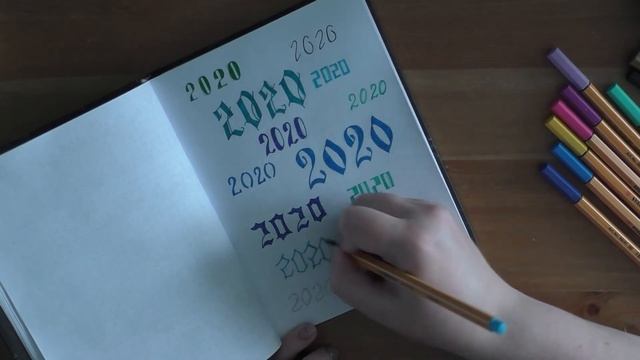 2020
2020
2020
2020
2020
2020
2020
2020
2020
2020
2020
2020